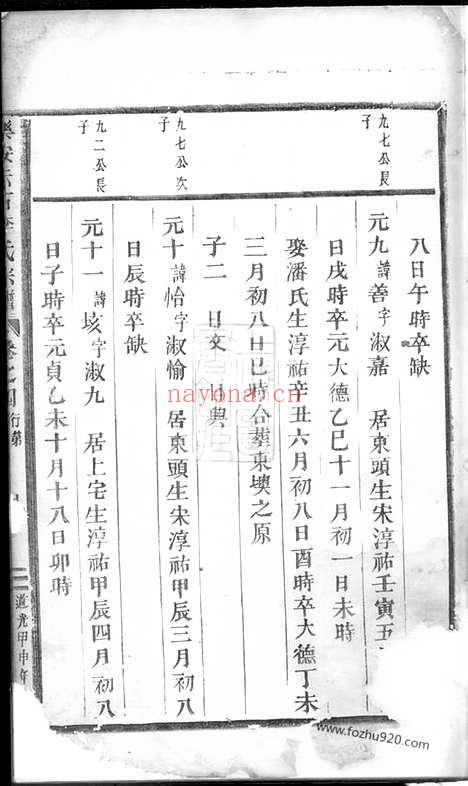 八日午時卒缺
九七公長子
元九 諱善字淑嘉 居東頭生宋淳祐壬寅五
日戌時卒元大德乙巳十一月初一日未時
娶潘氏生淳祐辛丑六月初八日酉時卒大德丁未
三月初八日巳時合葬東墺之原
子二 曰文 曰興
九七公次子
元十 諱怡字淑愉 居東頭生宋淳祐甲辰三月初八
日辰時卒缺
九二公長子
元十一 諱垓字淑九 居上宅生淳祐甲辰四月初八
日子時卒元貞乙未十月十八日卯時
氏宗譜 卷之四 行第
道光甲申年
nayona.cn
www.fozhu920.com